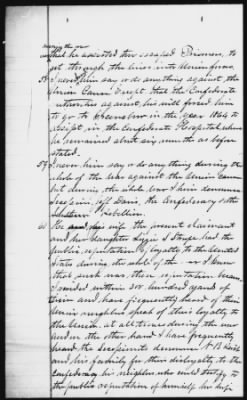 that he assisted other escaped Prisoners, to
get through the lines into Union lines.
58 I never him say or do anything against the
Union Cause Except that the Confederate
authorities against his will forced him
to go to Greensboro in the year 1864 to
in the Confederate Hospital where
he remained about six months as before
stated.
59 I never him say or do anything during the
whole of the war against the Union cause
but during the whole War I him denounce
Secession, Jeff Davis, the Confederacy & the
Southern Rebellion.
He and his wife the present claimant
and her daughter Lizzie had the
public reputation of loyalty to the United
States during the whole of the war I know
that such was their reputation because
I resided within 300 hundred yards of
them and have frequently heard of their
Union neighbors speak of their loyalty to
the Union at all times during the war
and on the other hand I have frequently
heard the Secessionists denounce
and his family for their disloyalty to the
Confederacy his neighbors who could testify to
the public reputation of himself his wife